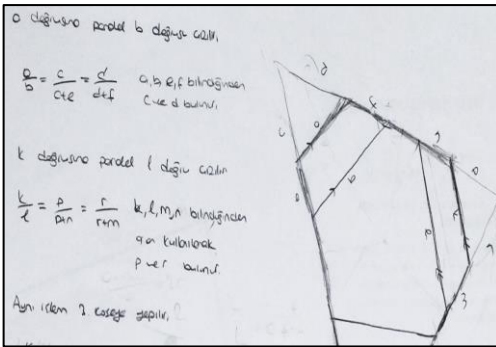 a doğrusuna paralel b doğrusu çizilir.
a/b = c/c+e = d/d+f a, b, e, f bilindiğinden
c ve d bulunur.
k doğrusuna paralel l doğru çizilir
k/l = p/p+n = r/r+m k, l, m, n bilindiğinden
kullanılarak
p ve r bulunur.
Aynı işlem 3. köşeye yapılır.
d
c
a
f
e
b
m
k
l
n